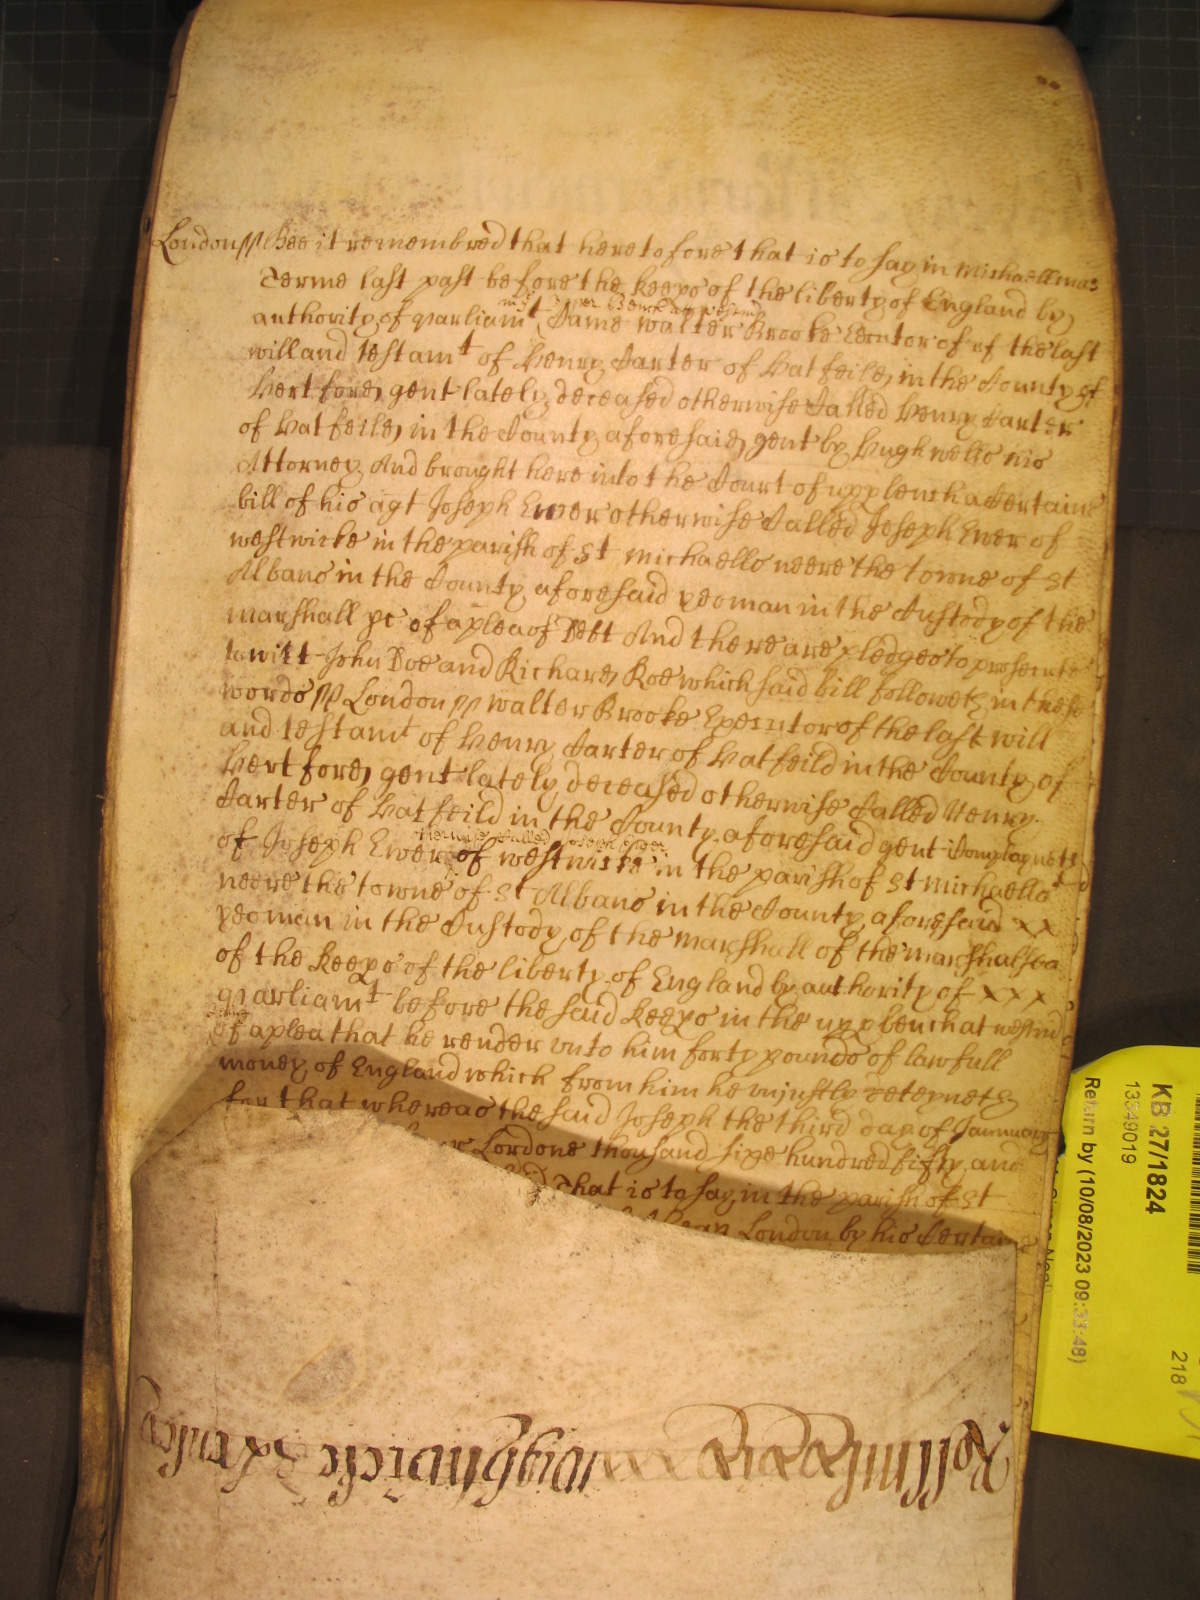 London // Bee it remembred that heretofore that is to say in Michaellmas
Terme last past before the keeps of the liberty of England by
in the upper Bench att westmr
authority of parliamt Came Walter Brooke Executor of of the last
will and testamt of Henry Carter of Hatfeild in the County of
Hertford gent lately deceased otherwise Called Henry Carter
of Hatfeild in the County aforesaid gent by Hugh Wells his
Attorney And brought here into the Court of upp bench a Certaine
bill of his agt Joseph Ewer otherwise Called Joseph Ewer of
westwicke in the parish of St Michaells neere the towne of St
Albans in the County aforesaid yeoman in the Custody of the
marshall &c of a plea of Debt And there are pledges to prosecute
to witt John Doe and Richard Roe which said bill followeth in these
words // London // Walter Brooke Executor of the last will
and testamt of Henry Carter of Hatfeild in the County of
Hertford gent lately deceased otherwise Called Henry
Carter of Hatfeild in the County aforesaid gent Complayneth
otherwise Called Joseph Ewer
of Joseph Ewer of westwicke in the parish of St Michaells
neere the towne of St Albans in the County aforesaid x x
yeoman in the Custody of the marshall of the marshalsea
of the keeps of the liberty of England by authority of x x x
parliamt before the said keeps in the upp bench at westmr
being
of a plea that he render unto him forty pounds of lawfull
money of England which from him he unjustly deteyneth
for that whereas the said Joseph the third day of January
Lord one thousand sixe hundred fifty and
That is to say in the parish of St
London by his Certain
KB 27/1824
13549019
Return by (10/08/2023 09:33:48)
218